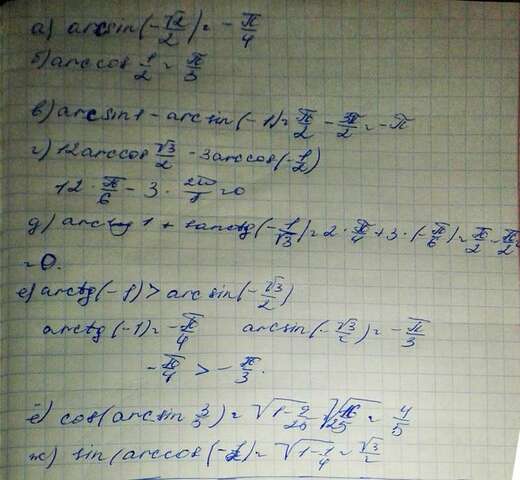 а) arcsin(-√2/2) = -π/4
б) arccos 1/2 = π/3
в) arcsin1 - arcsin(-1) = π/2 - 3π/2 = -π
г) 12arccos √3/2 - 3arccos(-1/2)
12 · π/6 - 3 · 2π/3 = 0
д) arctg 1 + arctg(-1/√3) = 2 · π/4 + 3 · (-π/6) = π/2 - π/2
= 0.
е) arctg(-1) > arcsin(-√3/2)
arctg(-1) = -π/4 arcsin(-√3/2) = -π/3
-π/4 > -π/3.
ё) cos(arcsin 3/5) = √1-9/25 √16/25 = 4/5
ж) sin(arccos(-1/2) = √1-1/4 = √3/2